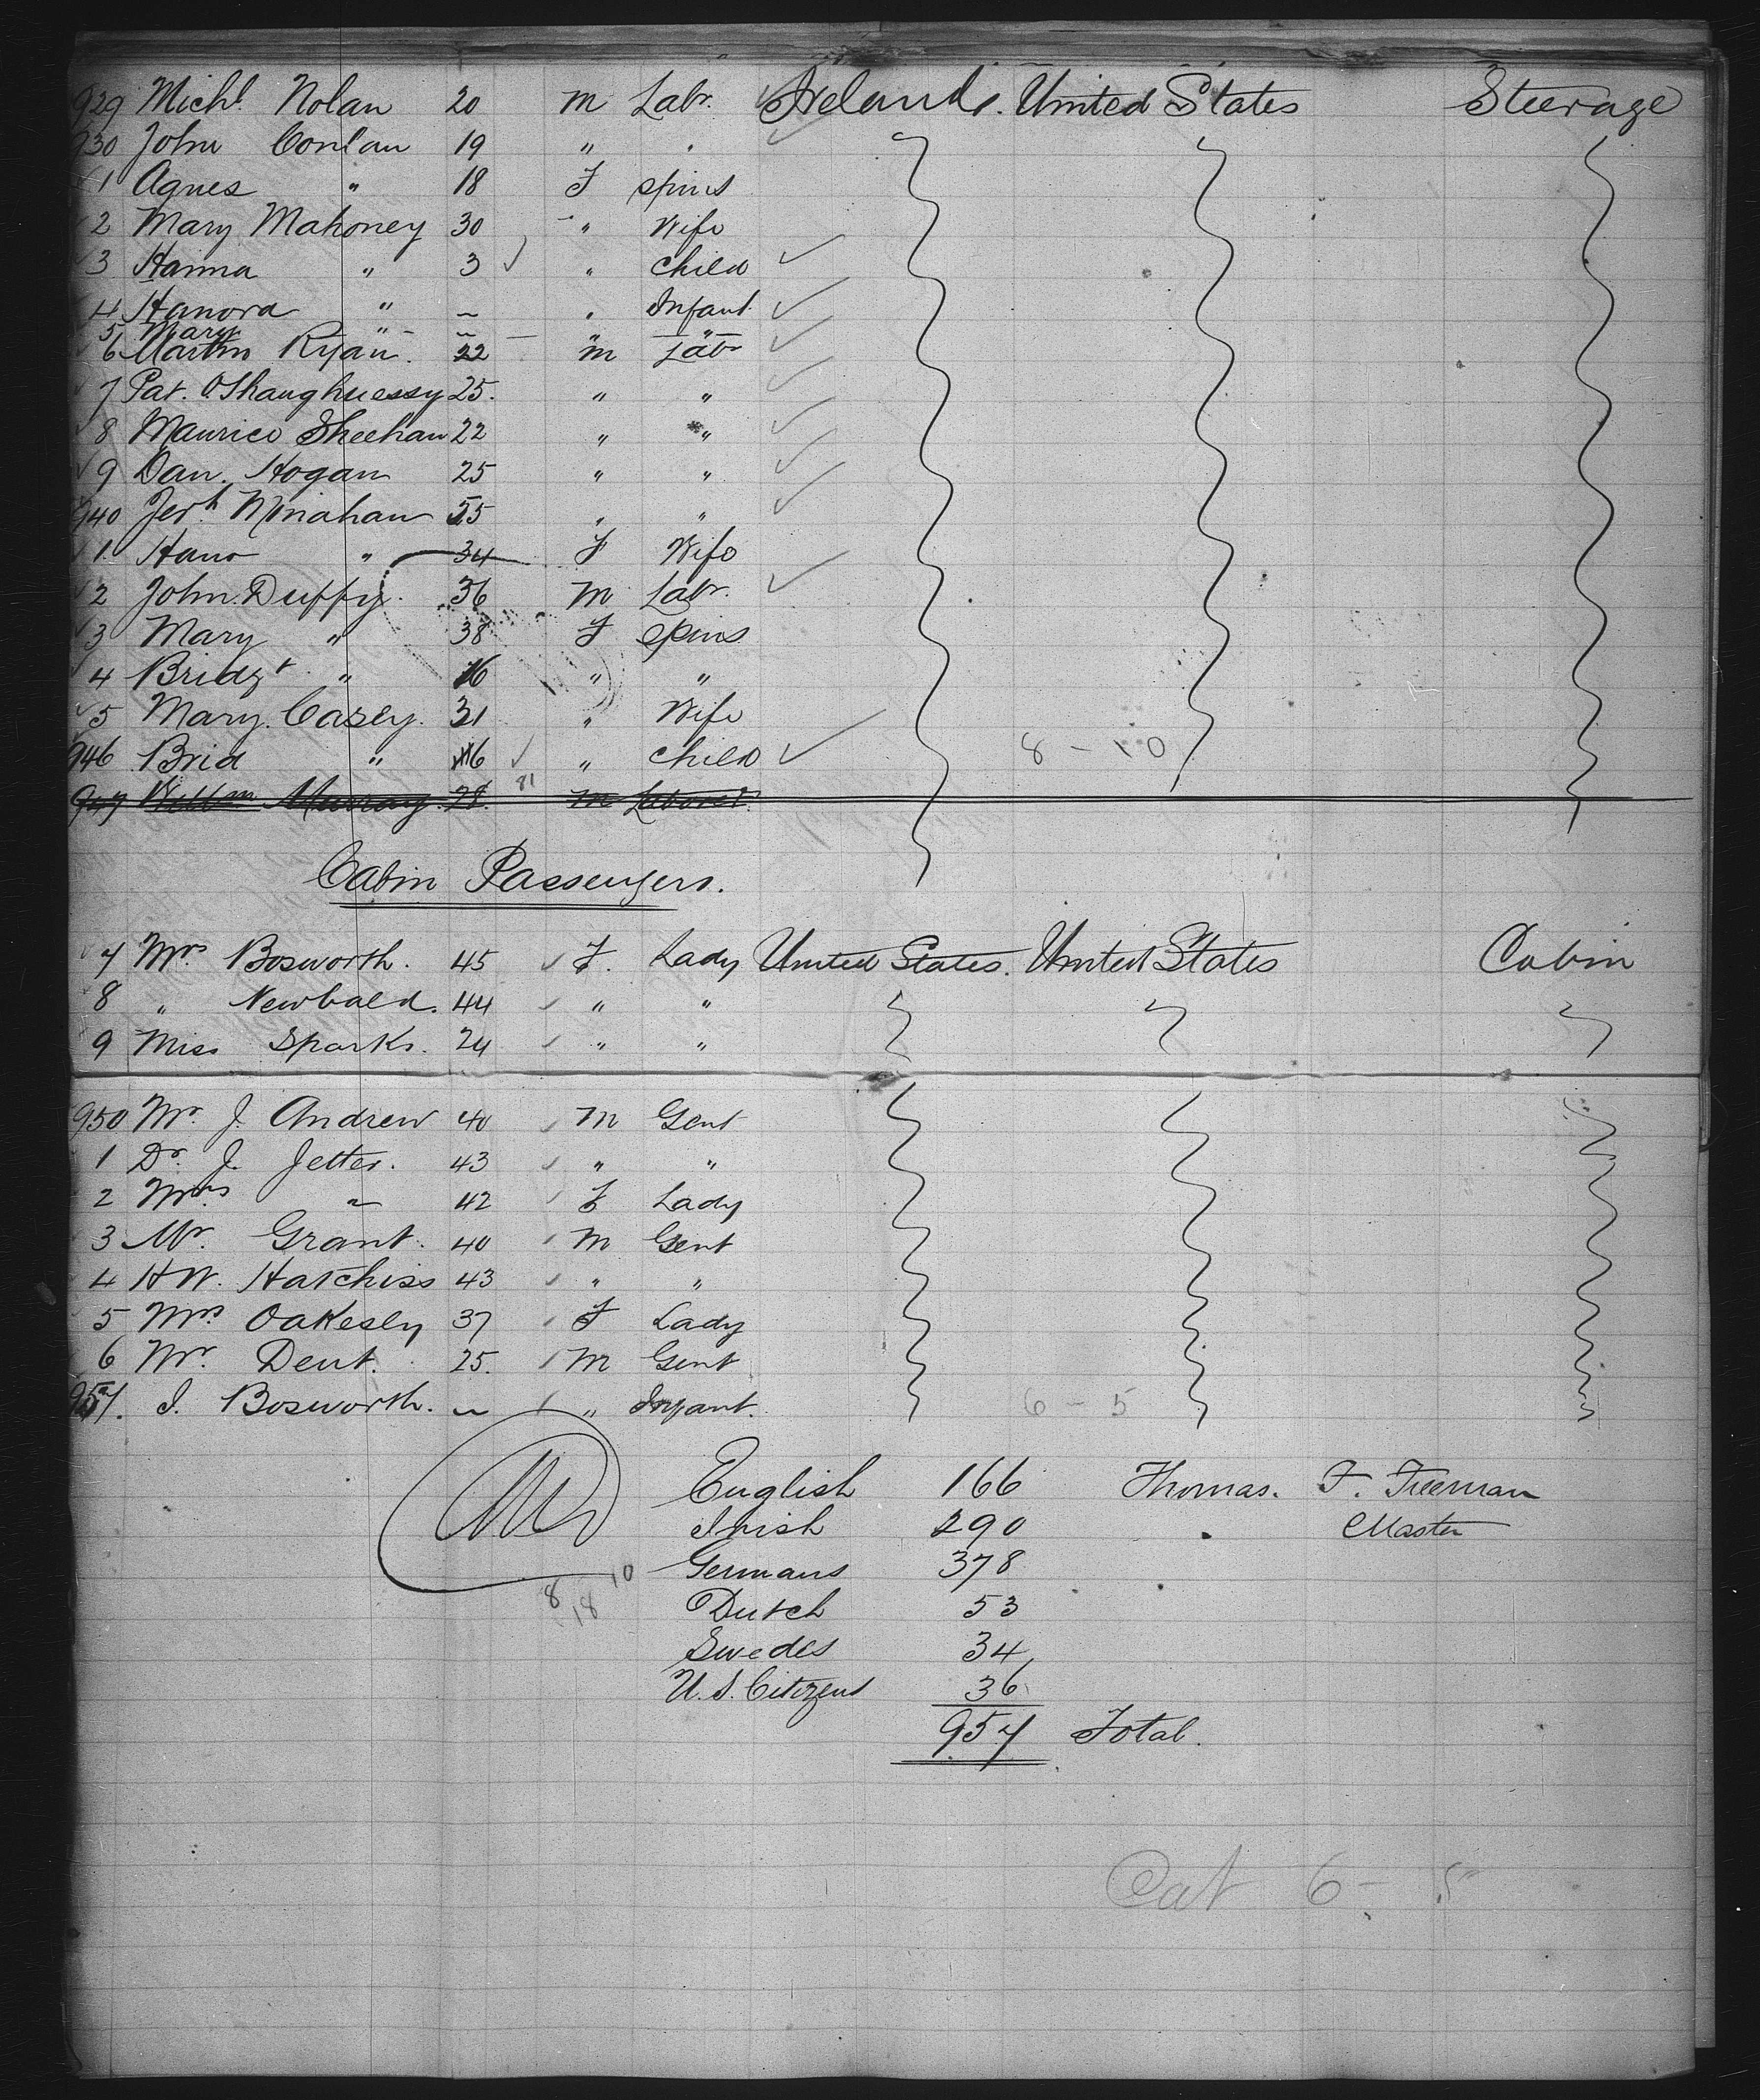 929 Michl. Nolan 20 m Labr. Ireland. United States Steerage
930 John Conlan 19 " "
1 Agnes " 18 F Spins
2 Mary Mahoney 30 " Wife
3 Hanna " 3 " Child
4 Hanora " ~ " Infant
5 Mary " ~ " "
6 Martin Ryan 22 m Labr
7 Pat. OShaughnessy 25. " "
8 Maurice Sheehan 22 " "
9 Dan. Hogan 25 " "
940 Jerh. Minahan 55 " "
1 Hano " 34 F Wife
2 John Duffy. 36 m Labr.
3 Mary " 38 F Spins
4 Bridgt " 16 " "
5 Mary Casey. 31 " Wife
946 Brid " 6 " Child 8 - 10
81
947 Willm Murray. 28. m Laborer
Cabin Passengers.
7 Mrs Bosworth. 45 F. Lady United States. United States Cabin
8 " Newbald. 44 " "
9 Miss Sparks. 24 " "
950 Mr. J. Andrew 40 m Gent
1 Dr. J. Jetter. 43 " "
2 Mrs " 42 F Lady
3 Mr. Grant. 40 m Gent
4 H W. Hatchiss 43 " "
5 Mrs Oakesly 37 F Lady
6 Mr. Dent. 25. m Gent
957. I. Bosworth. ~ " Infant. 6 - 5
English 166 Thomas. F. Freeman
Irish 290 Master
Germans 378
8 18 10
Dutch 53
Swedes 34
U.S. Citizens 36
957 Total.
6 - 5